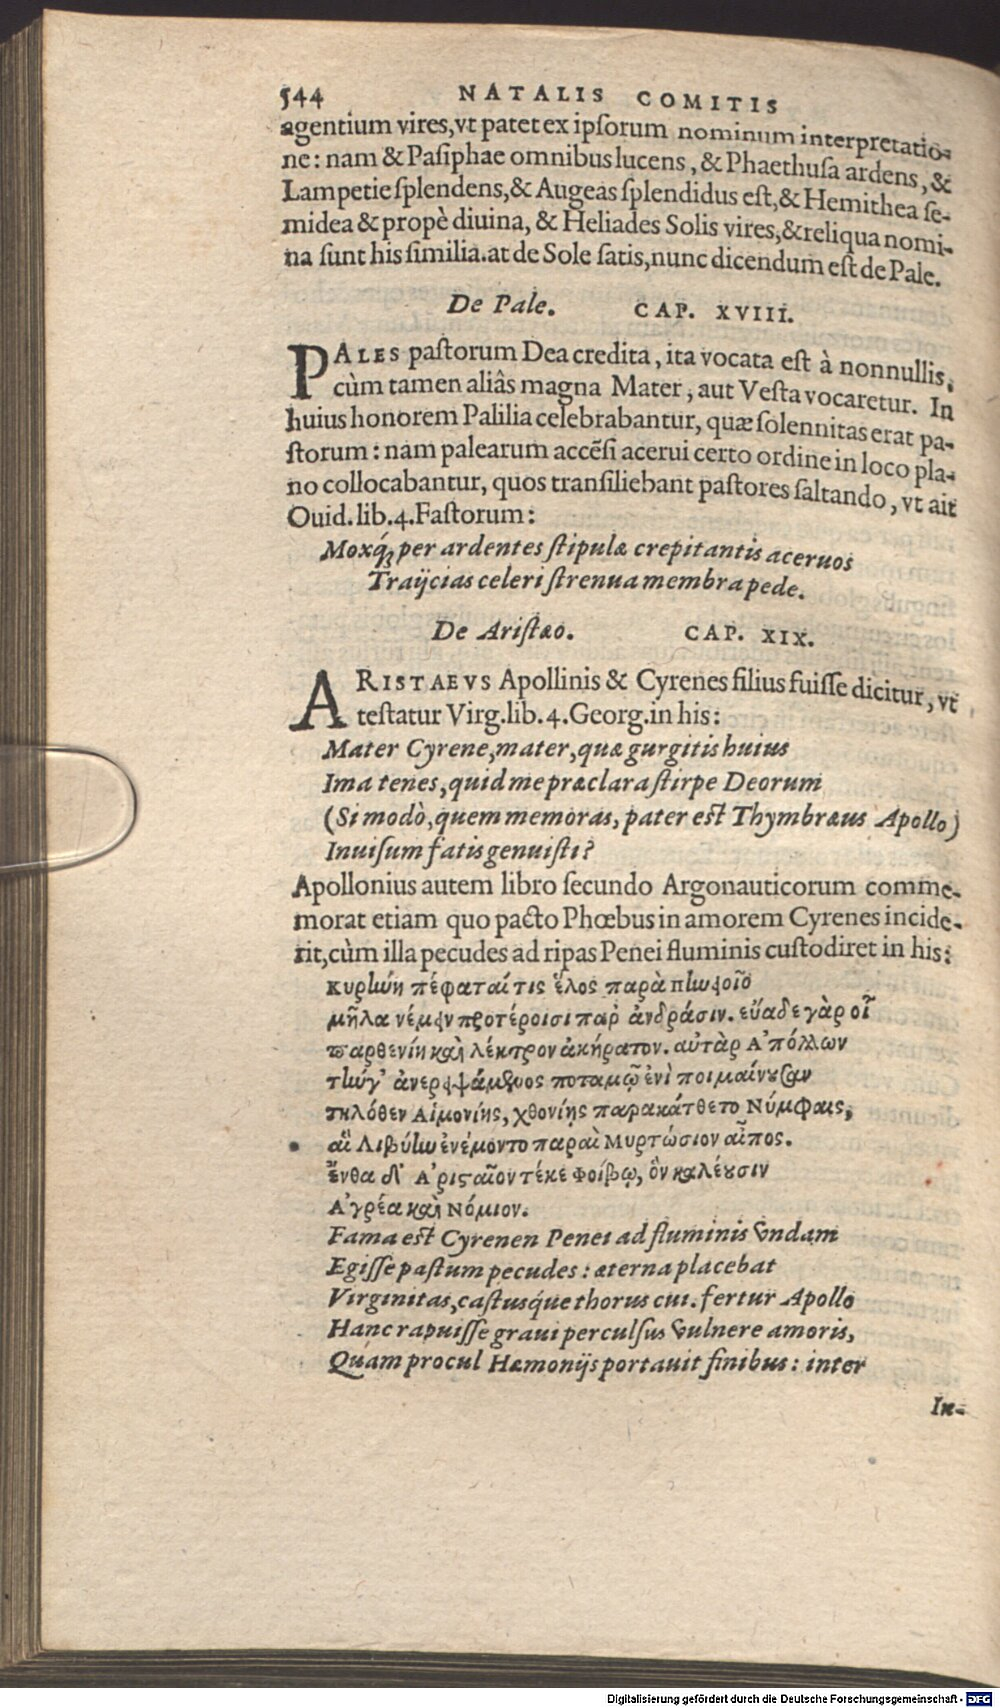 544 NATALIS COMITIS
agentium vires, vt patet ex ipſorum nominum interpretatio-
ne: nam & Paſiphae omnibus lucens, & Phaethuſa ardens, &
Lampetie ſplendens, & Augeas ſplendidus eſt, & Hemithea ſe-
midea & propè diuina, & Heliades Solis vires, & reliqua nomi-
na ſunt his ſimilia. at de Sole ſatis, nunc dicendum eſt de Pale.
De Pale. CAP. XVIII.
PALES paſtorum Dea credita, ita vocata eſt à nonnullis,
cùm tamen aliâs magna Mater, aut Veſta vocaretur. In
huius honorem Palilia celebrabantur, quæ ſolennitas erat pa-
ſtorum: nam palearum accẽſi acerui certo ordine in loco pla-
no collocabantur, quos tranſiliebant paſtores ſaltando, vt ait
Ouid. lib. 4. Faſtorum:
Moxq́; per ardentes ſtipulæ crepitantis aceruos
Traijcias celeri ſtrenua membra pede.
De Ariſtæo. CAP. XIX.
ARISTAEVS Apollinis & Cyrenes filius fuiſſe dicitur, vt
teſtatur Virg. lib. 4. Georg. in his:
Mater Cyrene, mater, quæ gurgitis huius
Ima tenes, quid me præclara ſtirpe Deorum
(Si modò, quem memoras, pater eſt Thymbræus Apollo)
Inuiſum fatis genuiſti?
Apollonius autem libro ſecundo Argonauticorum comme-
morat etiam quo pacto Phœbus in amorem Cyrenes incide-
rit, cùm illa pecudes ad ripas Penei fluminis cuſtodiret in his:
Κυρήνη πέφαταί τις ἕλος παρὰ πηνειοῖο
μῆλα νέμειν προτέροισι παρ' ἀνδράσιν. εὔαδε γὰρ οἷ
παρθενίη καὶ λέκτρον ἀκήρατον. αὐτὰρ Ἀπόλλων
τήνγ' ἀνερειψάμενος ποταμῷ ἐνὶ ποιμαίνουσαν
τηλόθεν Αἱμονίης, χθονίης παρακάτθετο Νύμφαις,
αἳ Λιβύην ἐνέμοντο παραὶ Μυρτώσιον αἶπος.
ἔνθα δ' Ἀρισταῖον τέκε Φοίβῳ, ὃν καλέουσιν
Ἀγρέα καὶ Νόμιον.
Fama eſt Cyrenen Penei ad fluminis vndam
Egiſſe paſtum pecudes: æterna placebat
Virginitas, caſtusq́ue thorus cui. fertur Apollo
Hanc rapuiſſe graui perculſus vulnere amoris,
Quàm procul Hæmonijs portauit finibus: inter
In-
Digitalisierung gefördert durch die Deutsche Forschungsgemeinschaft - DFG